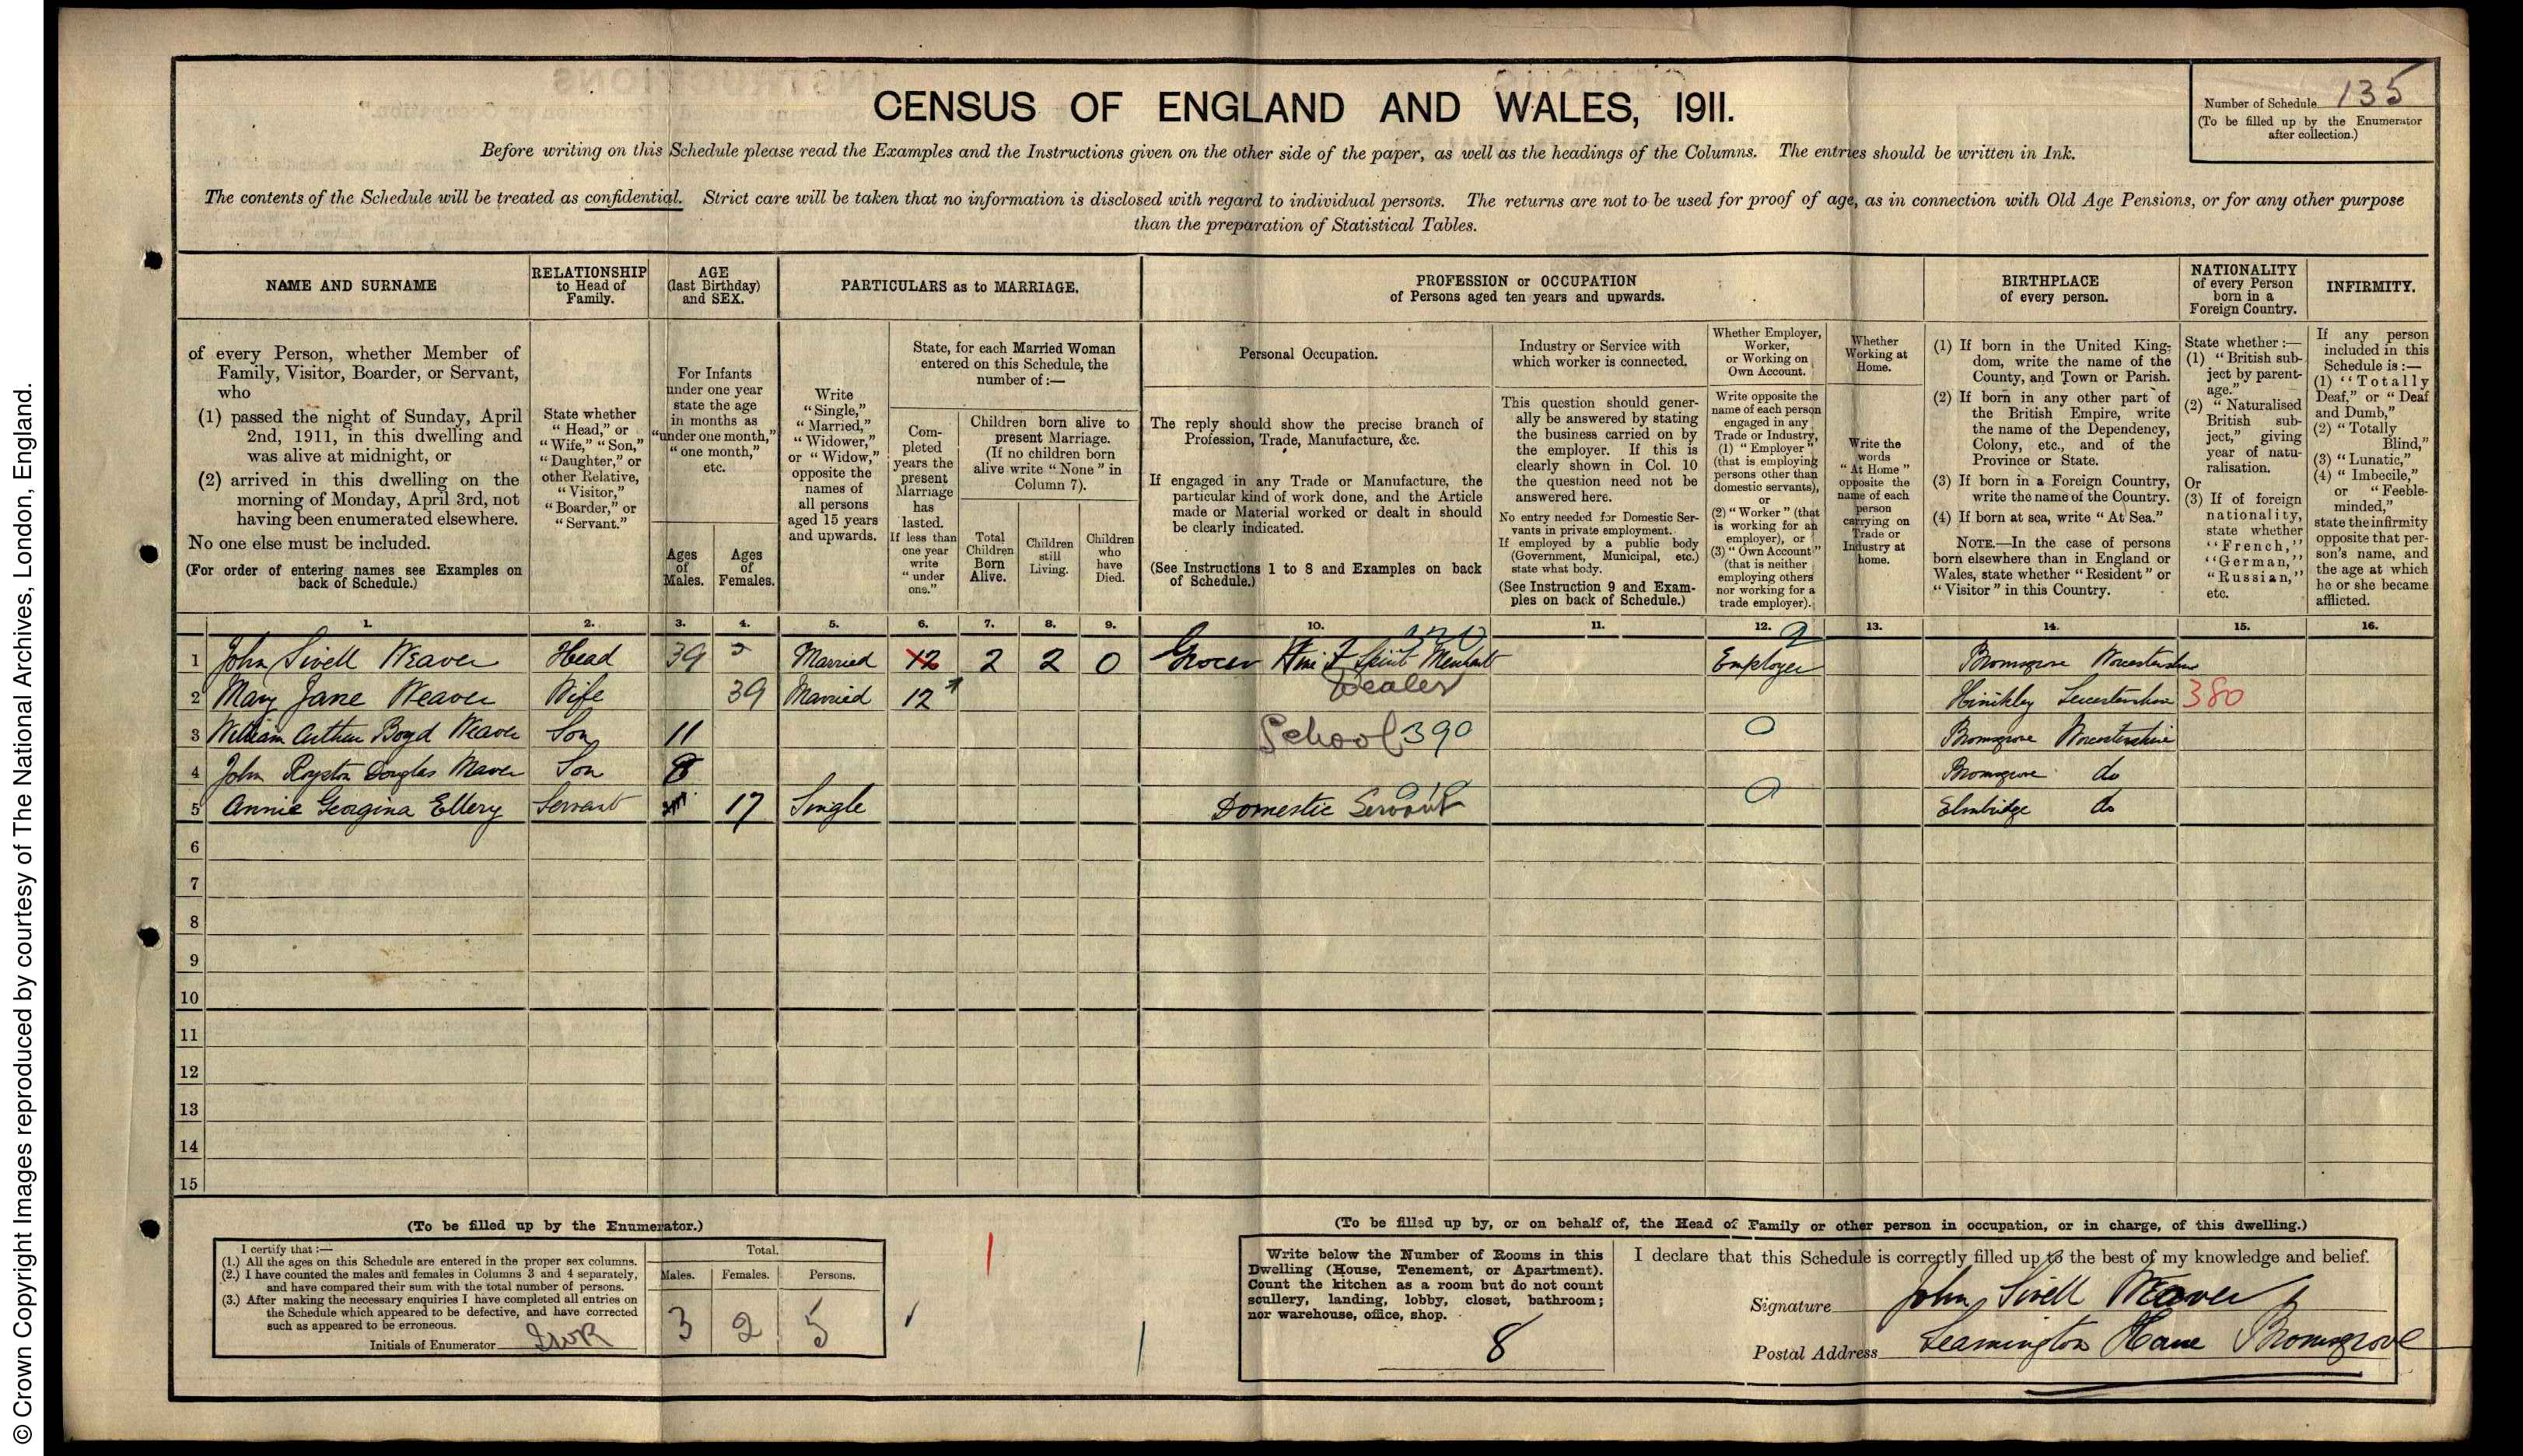 © Crown Copyright Images reproduced by courtesy of The National Archives, London, England.
CENSUS OF ENGLAND AND WALES, 1911.
Number of Schedule 135
(To be filled up by the Enumerator
after collection.)
Before writing on this Schedule please read the Examples and the Instructions given on the other side of the paper, as well as the headings of the Columns. The entries should be written in Ink.
The contents of the Schedule will be treated as confidential. Strict care will be taken that no information is disclosed with regard to individual persons. The returns are not to be used for proof of age, as in connection with Old Age Pensions, or for any other purpose
than the preparation of Statistical Tables.
NAME AND SURNAME
of every Person, whether Member of
Family, Visitor, Boarder, or Servant,
who
(1) passed the night of Sunday, April
2nd, 1911, in this dwelling and
was alive at midnight, or
(2) arrived in this dwelling on the
morning of Monday, April 3rd, not
having been enumerated elsewhere.
No one else must be included.
(For order of entering names see Examples on
back of Schedule.)
RELATIONSHIP
to Head of
Family.
State whether
"Head," or
"Wife," "Son,"
"Daughter," or
other Relative,
"Visitor,"
"Boarder," or
"Servant."
AGE
(last Birthday)
and SEX.
For Infants
under one year
state the age
in months as
"under one month,"
"one month,"
etc.
Ages
of
Males.
Ages
of
Females.
PARTICULARS as to MARRIAGE.
Write
"Single,"
"Married,"
"Widower,"
or "Widow,"
opposite the
names of
all persons
aged 15 years
and upwards.
State, for each Married Woman
entered on this Schedule, the
number of:—
Com-
pleted
years the
present
Marriage
has
lasted.
If less than
one year
write
"under
one."
Children born alive to
present Marriage.
(If no children born
alive write "None" in
Column 7).
Total
Children
Born
Alive.
Children
still
Living.
Children
who
have
Died.
PROFESSION or OCCUPATION
of Persons aged ten years and upwards.
Personal Occupation.
The reply should show the precise branch of
Profession, Trade, Manufacture, &c.
If engaged in any Trade or Manufacture, the
particular kind of work done, and the Article
made or Material worked or dealt in should
be clearly indicated.
(See Instructions 1 to 8 and Examples on back
of Schedule.)
Industry or Service with
which worker is connected.
This question should gener-
ally be answered by stating
the business carried on by
the employer. If this is
clearly shown in Col. 10
the question need not be
answered here.
No entry needed for Domestic Ser-
vants in private employment.
If employed by a public body
(Government, Municipal, etc.)
state what body.
(See Instruction 9 and Exam-
ples on back of Schedule.)
Whether Employer,
Worker,
or Working on
Own Account.
Write opposite the
name of each person
engaged in any
Trade or Industry,
(1) "Employer"
(that is employing
persons other than
domestic servants),
or
(2) "Worker" (that
is working for an
employer), or
(3) "Own Account"
(that is neither
employing others
nor working for a
trade employer).
Whether
Working at
Home.
Write the
words
"At Home"
opposite the
name of each
person
carrying on
Trade or
Industry at
home.
BIRTHPLACE
of every person.
(1) If born in the United King-
dom, write the name of the
County, and Town or Parish.
(2) If born in any other part of
the British Empire, write
the name of the Dependency,
Colony, etc., and of the
Province or State.
(3) If born in a Foreign Country,
write the name of the Country.
(4) If born at sea, write "At Sea."
NOTE.—In the case of persons
born elsewhere than in England or
Wales, state whether "Resident" or
"Visitor" in this Country.
NATIONALITY
of every Person
born in a
Foreign Country.
State whether:—
(1) "British sub-
ject by parent-
age."
(2) "Naturalised
British sub-
ject," giving
year of natu-
ralisation.
Or
(3) If of foreign
nationality,
state whether
"French,"
"German,"
"Russian,"
etc.
INFIRMITY.
If any person
included in this
Schedule is:—
(1) "Totally
Deaf," or "Deaf
and Dumb,"
(2) "Totally
Blind,"
(3) "Lunatic,"
(4) "Imbecile,"
or "Feeble-
minded,"
state the infirmity
opposite that per-
son's name, and
the age at which
he or she became
afflicted.
1. 2. 3. 4. 5. 6. 7. 8. 9. 10. 11. 12. 13. 14. 15. 16.
1 John Sivell Weaver Head 39 Married 12 2 2 0 Grocer Wine & Spirit Merchant Employer Bromsgrove Worcestershire
Dealer
2 Mary Jane Weaver Wife 39 Married 12 Hinckley Leicestershire 380
3 William Arthur Boyd Weaver Son 11 School 390 0 Bromsgrove Worcestershire
4 John Royston Douglas Weaver Son 8 Bromsgrove do
5 Annie Georgina Ellery Servant 17 Single Domestic Servant 0 Elmbridge do
6
7
8
9
10
11
12
13
14
15
(To be filled up by the Enumerator.)
I certify that:—
(1.) All the ages on this Schedule are entered in the proper sex columns.
(2.) I have counted the males and females in Columns 3 and 4 separately,
and have compared their sum with the total number of persons.
(3.) After making the necessary enquiries I have completed all entries on
the Schedule which appeared to be defective, and have corrected
such as appeared to be erroneous.
Initials of Enumerator
Total.
Males. Females. Persons.
3 2 5
(To be filled up by, or on behalf of, the Head of Family or other person in occupation, or in charge, of this dwelling.)
Write below the Number of Rooms in this
Dwelling (House, Tenement, or Apartment).
Count the kitchen as a room but do not count
scullery, landing, lobby, closet, bathroom;
nor warehouse, office, shop.
8
I declare that this Schedule is correctly filled up to the best of my knowledge and belief.
Signature John Sivell Weaver
Postal Address Leamington House Bromsgrove